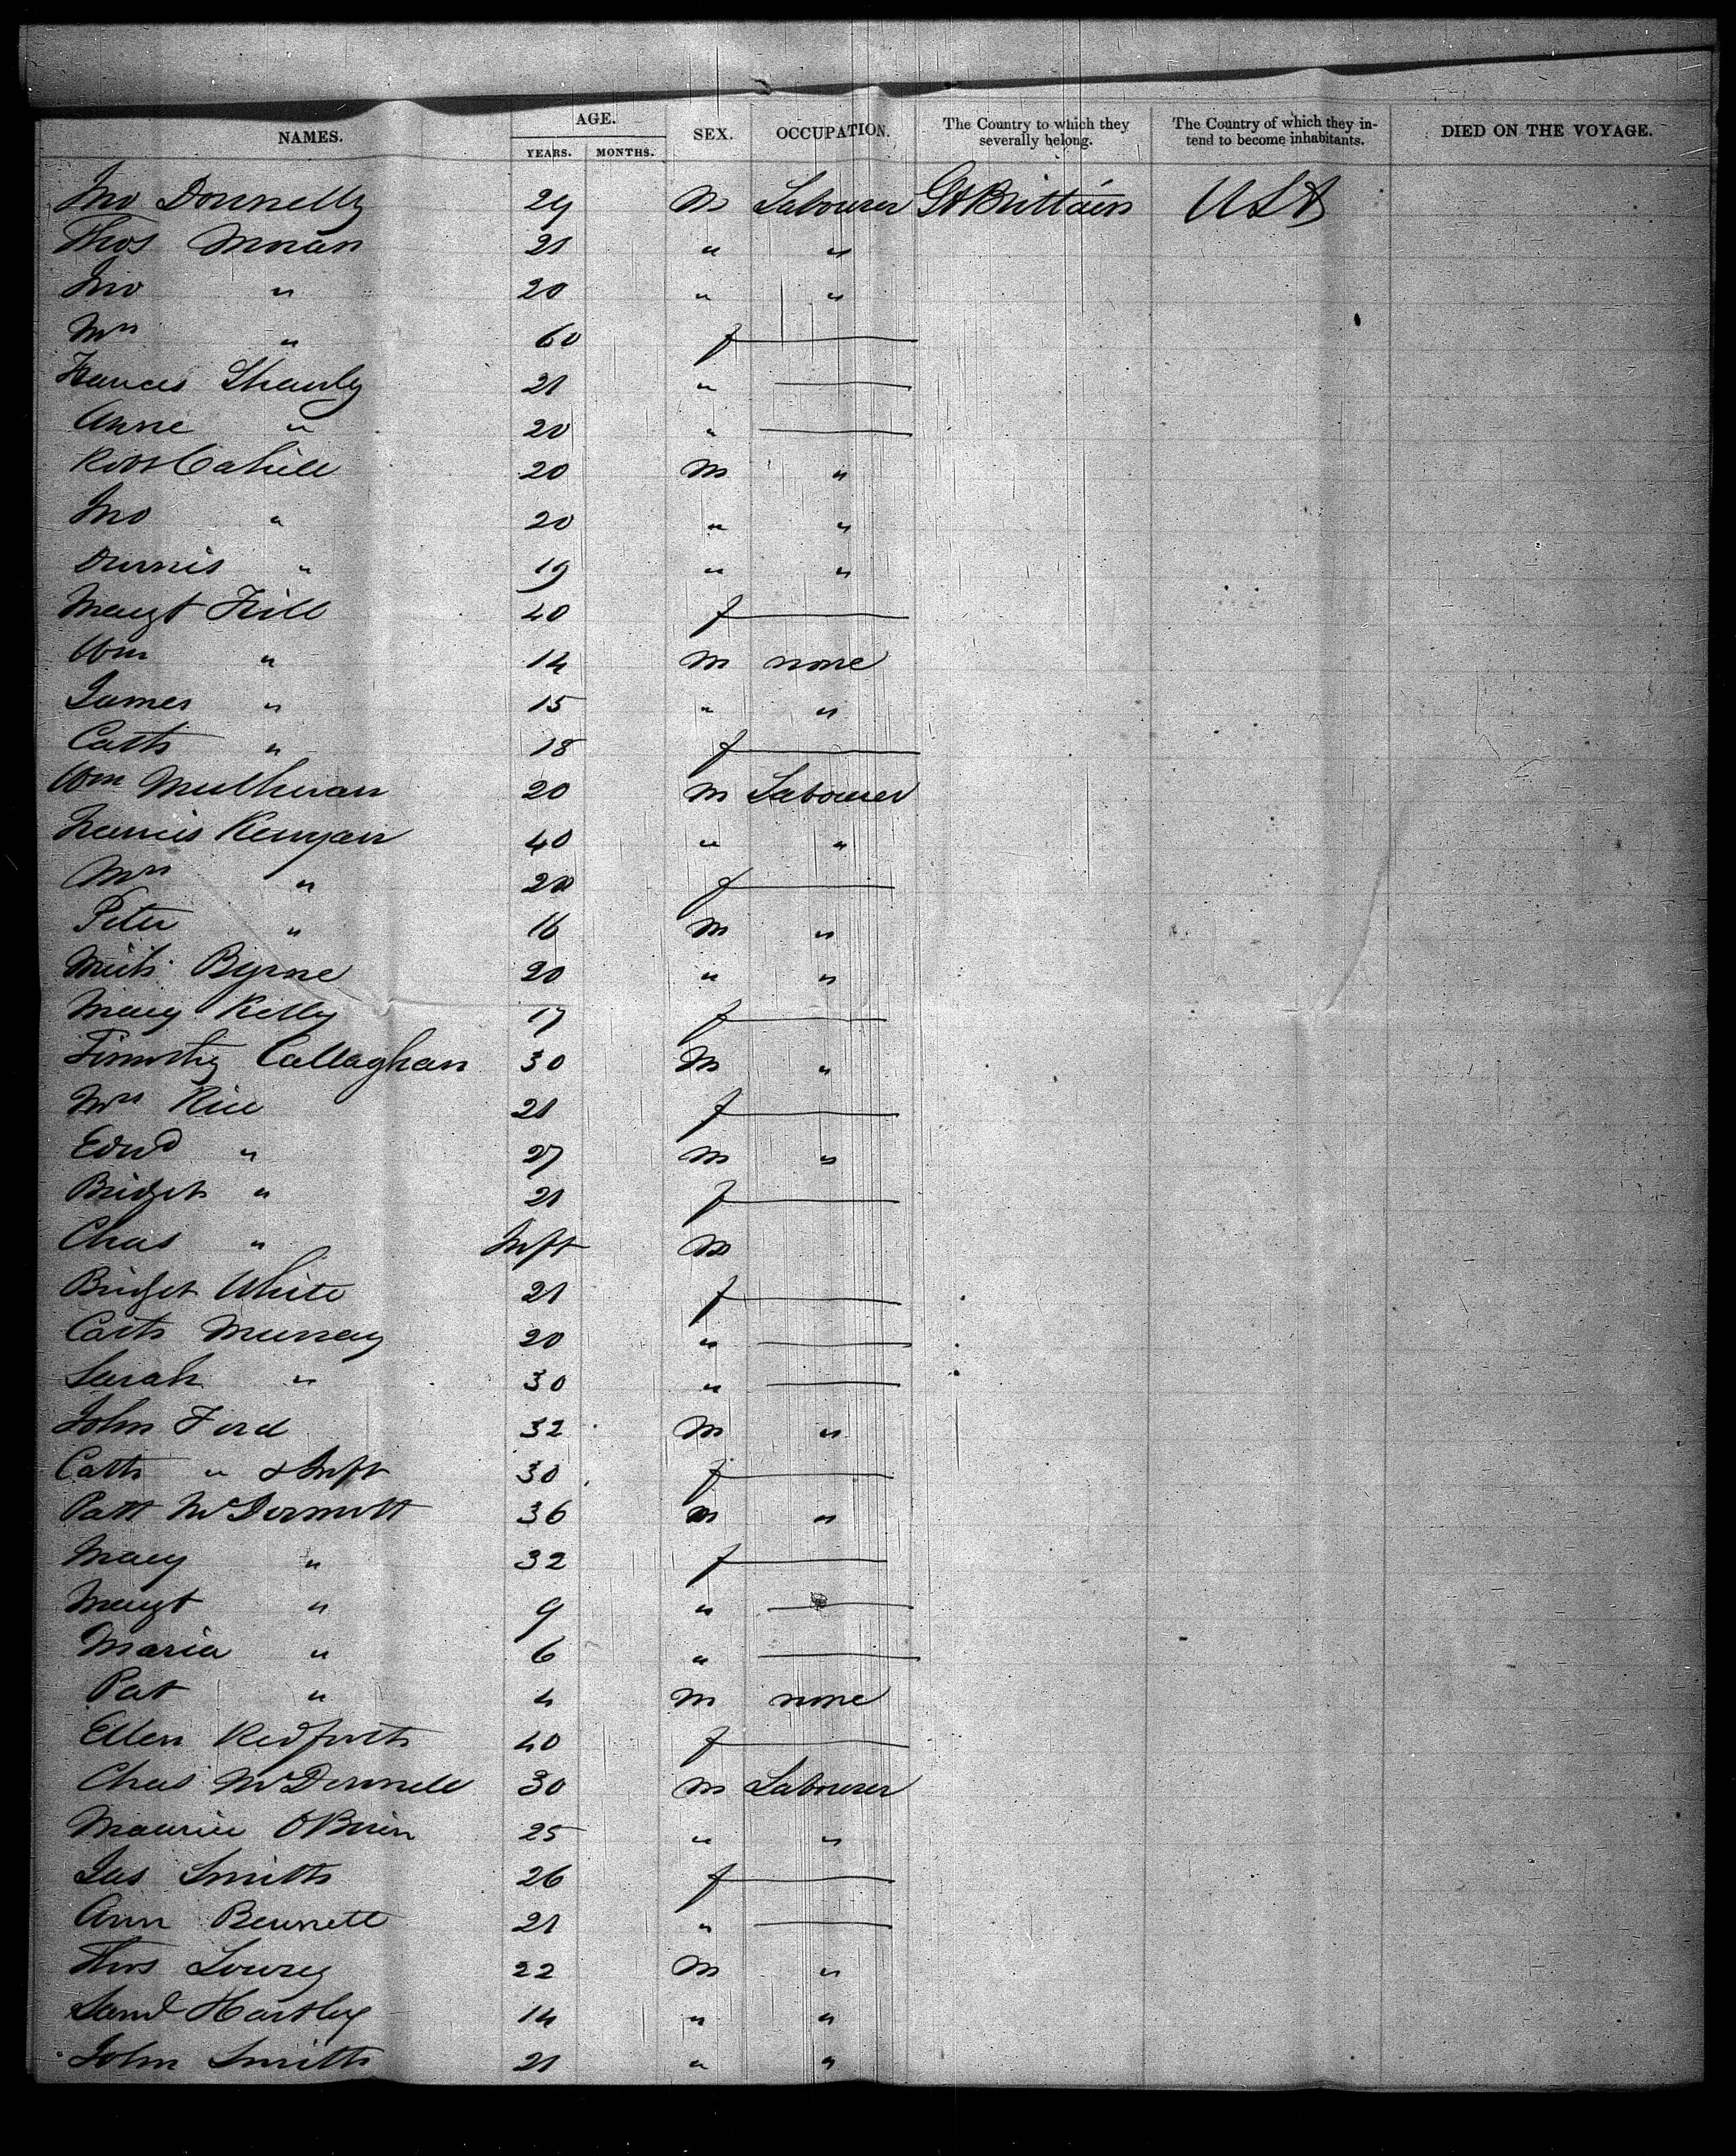 NAMES. AGE. SEX. OCCUPATION. The Country to which they severally belong. The Country of which they intend to become inhabitants. DIED ON THE VOYAGE.
YEARS. MONTHS.
Jno Donnelly 29 M Labourer Gt Brittain USA
Thos 21 " "
Jno " 20 " "
Mrs " 60 f —
Frances Shanly 21 " —
Anne " 20 " —
Robt Cahill 20 M "
Jno " 20 " "
Dennis " 19 " "
Margt Hill 40 f —
Wm " 14 M none
James " 15 " "
Cath " 18 f —
Wm 20 M Labourer
Francis Kenyan 40 " "
Mrs " 20 f —
Peter " 16 M "
Mich Byrne 20 " "
Mary Kelly 17 f —
Timothy Callaghan 30 M "
Mrs Rice 21 f —
Edwd " 27 M "
Bridget " 21 f —
Chas " Inft M
Bridget White 21 f —
Cath Murray 20 " —
Sarah " 30 " —
John Ford 32 M "
Cath " & Inft 30 f —
Patt McDermott 36 M "
Mary " 32 f —
Margt " 9 " —
Maria " 6 " —
Pat " 4 M none
Ellen 40 f —
Chas McDonnell 30 M Labourer
Maurice OBrien 25 " "
Jas Smith 26 f —
Ann Bennett 21 " —
Thos Lowrey 22 M "
Saml Hartley 14 " "
John Smith 21 " "